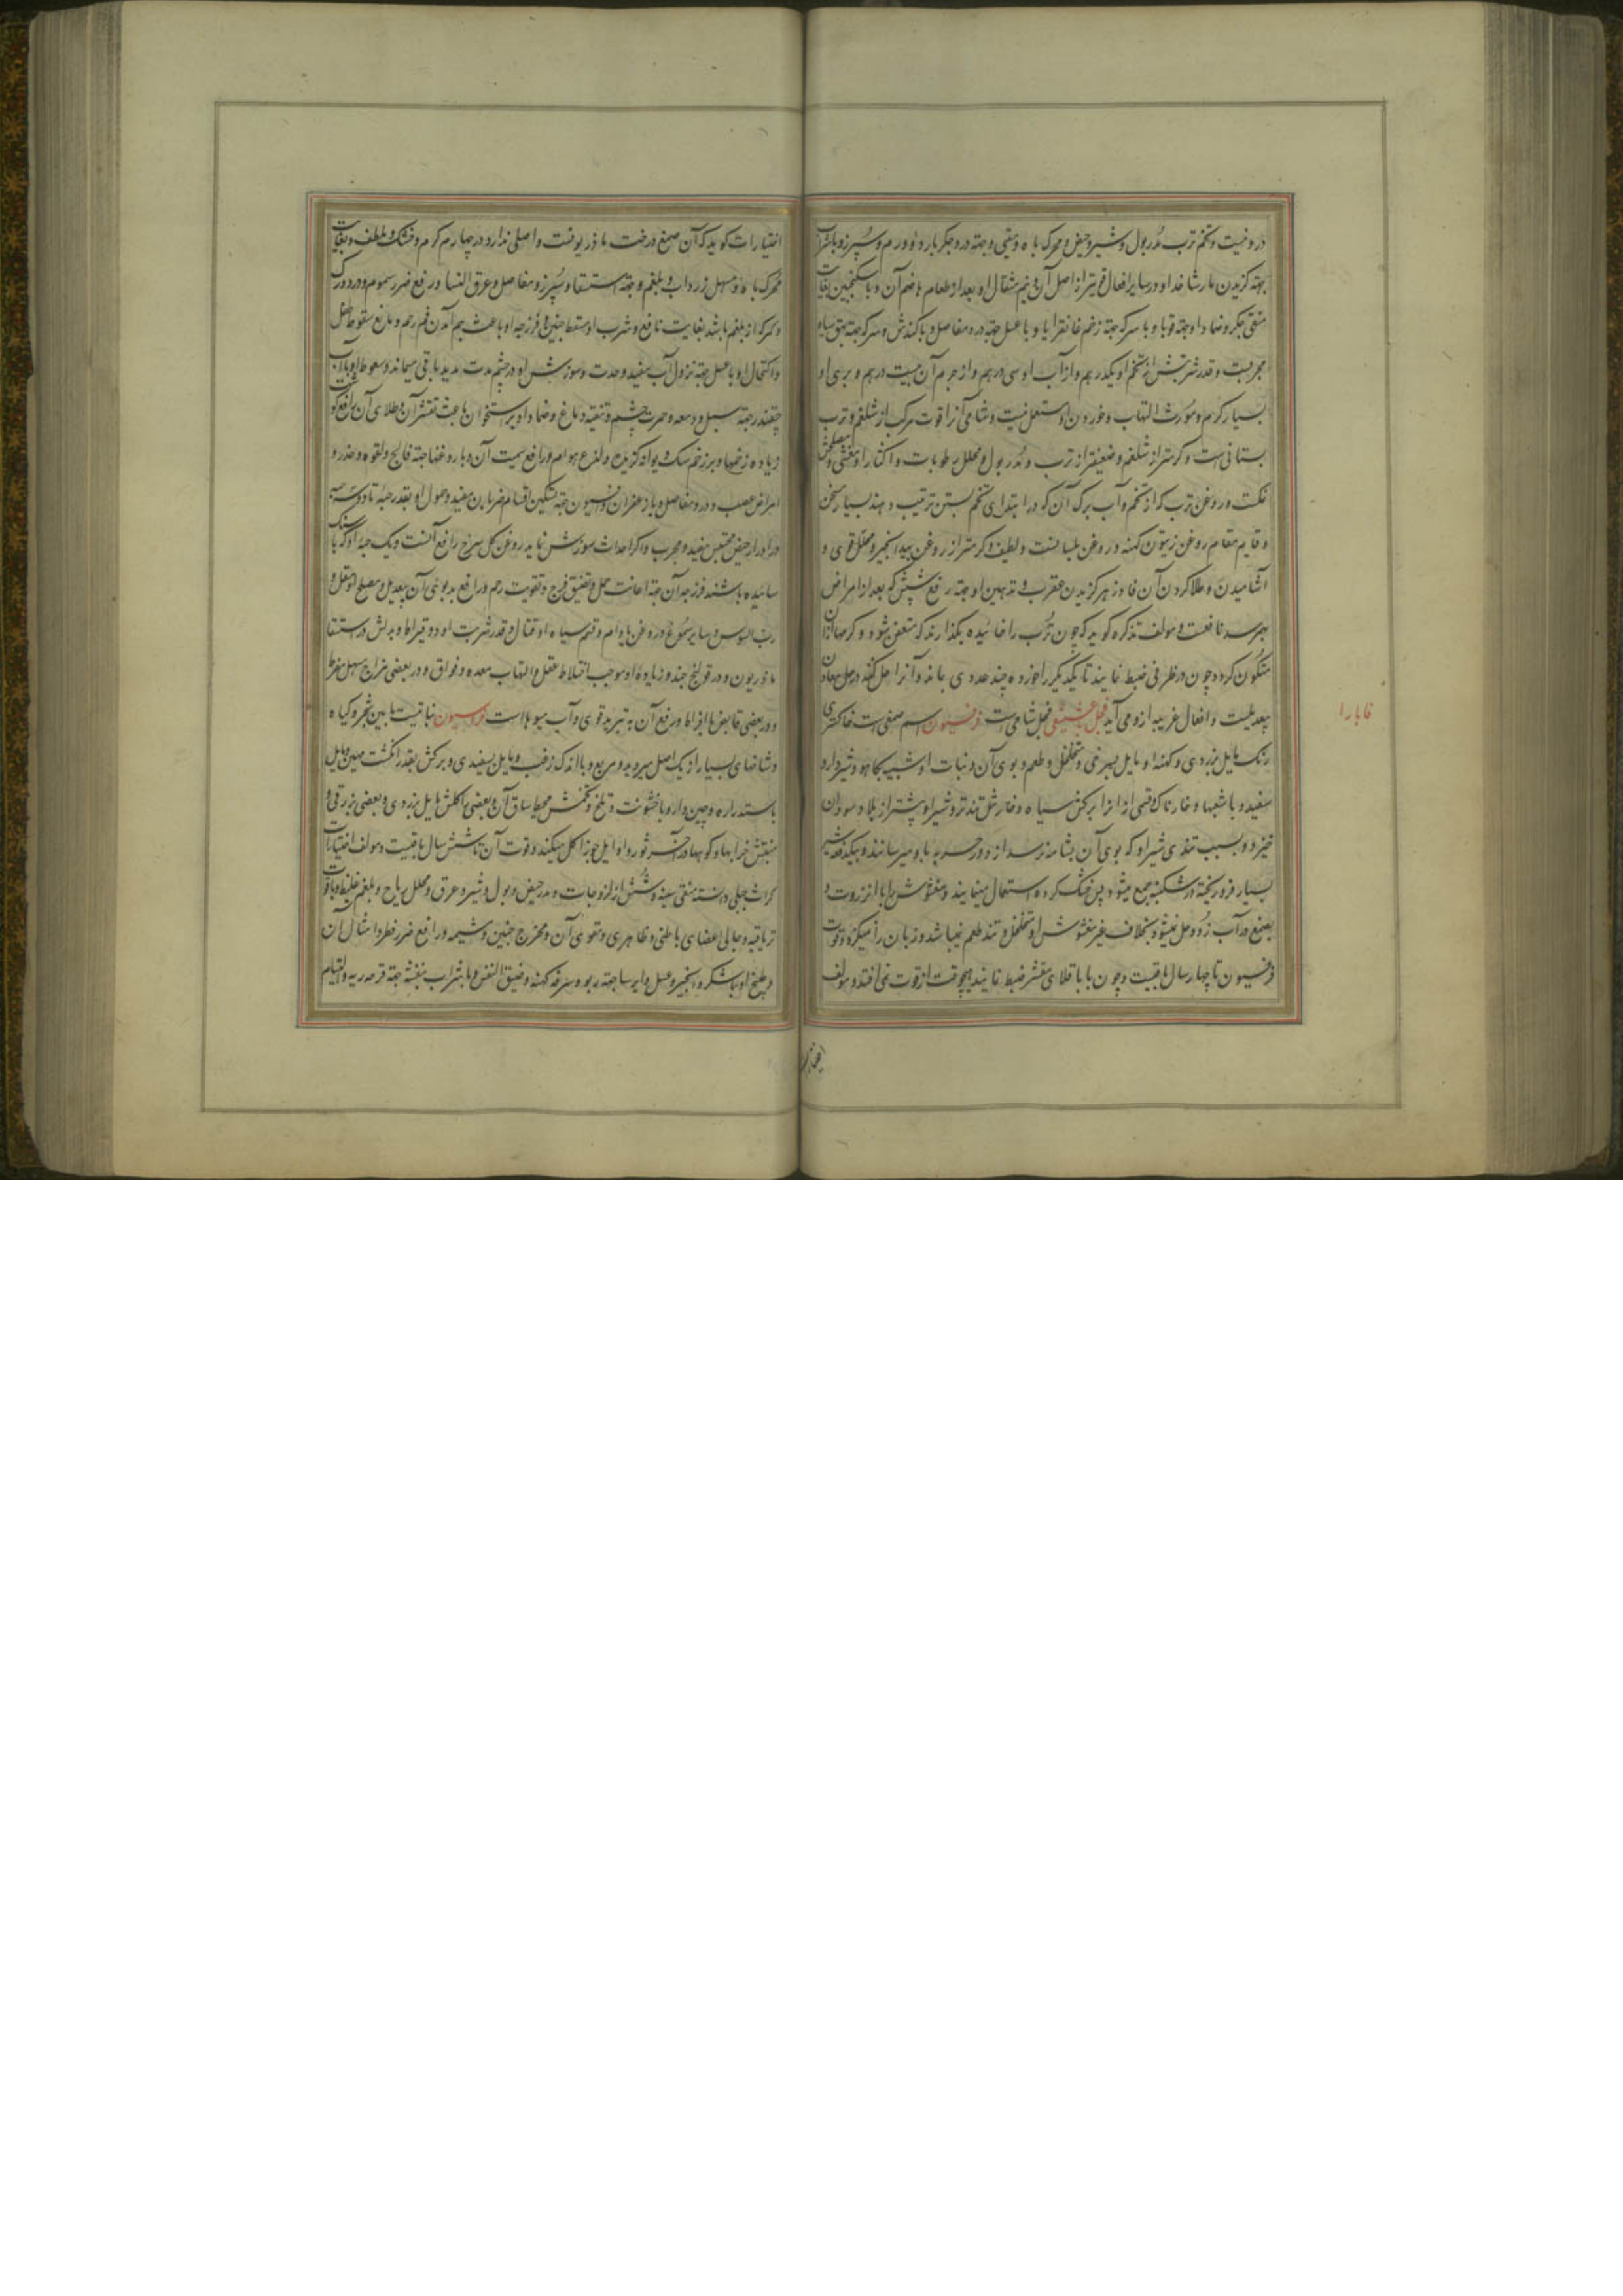 در وخیت و تخم ترب مدر بول و شیر و حیض و محرک باه و مقیی و جهة درد جکر بارد و ورم سپرز و باشراب
جهة کزیدن مار شاخدار و در سایر افعال قویتر از اصل آن و نیم مثقال او بعد از طعام هاضم آن و با سکنجبین بغایت
منقی جکر و ضماد او جهة قوبا و با سرکه جهة زخم غانقرایا و با عسل جهة درد مفاصل و با کندش و سرکه جهة بهق سیاه
مجربست و قدر شربتش از تخم او یکدرهم و از آب او سی درهم و از جرم آن بیست درهم و بری او
بسیار کرم و مورث التهاب و خوردن او مستعمل نیست و شامی آنرا قوت مرکب از شلغم و ترب
بستانی است و کرمتر از شلغم و ضعیفتر از ترب و مدر بول و محلل رطوبات و اکثار او مغشی و مصلحش
نمکست و روغن ترب که از تخم و آب برک آن که در ابتدای تخم بستن ترتیب دهند بسیار سخن
و قایم مقام روغن زیتون کهنه و روغن بلسانست و لطیف و کرمتر از روغن بیدانجیر و محلل قوی و
آشامیدن و طلا کردن آن فادزهر کزیدن عقرب و تدهین او جهة رفع شپش که بعد از امراض
بهرسد نافعست و مولف تذکره کوید که چون ترب را خائیده بکذارند که متعفن شود و کرمها از آن
متکون کردد و چون در ظرفی ضبط نمایند تا یکدیکر را خورده چند عددی بماند و آنرا حل کنند در حل معادن
بیعدیلست و افعال غریبه ازو می آید فجل عشیقی فجل شامی است فرفیون اسم صمغی است خاکستری
رنک مایل بزردی و کهنه او مایل بسرخی و متخلخل و طعم و بوی آن و نبات او شبیه بکاهو و شیردار و
سفید و با شعبها و خارناک و قسمی از آنرا برکش سیاه و خارش تندتر و شیر او بیشتر از بلاد سودان
خیزد و بسبب تندی شیر او که بوی آن بشامه نرسد از دور حربه باو میرسانند و بیکدفعه شیر
بسیار فرو ریخته در شکنبه جمع میشود پس خشک کرده استعمال مینمایند و مغشوش را با انزروت و
صمغ در آب زود حل نمیشود بخلاف غیر مغشوش او متخلخل و تند طعم نمیباشد و زبان را میکزد و قوت
فرفیون تا چهار سال باقیست و چون با باقلای مقشر ضبط نمایند هیچوقت از قوت نمی افتد و مولف
فابارا
اختیارات کوید که آن صمغ درخت ماذریونست و اصلی ندارد در چهارم کرم و خشک و ملطف و بغایت
محرک باه و مسهل زرداب و بلغم و جهة استسقا و سپرز و مفاصل و عرق النسا و رفع ضرر سموم و درد ورک
و کمر که از بلغم باشد بغایت نافع و شرب او مسقط جنین و فرزجه او باعث بهم آمدن فم رحم و مانع سقوط حمل
و اکتحال او با عسل جهة نزول آب مفید و حدت و سوزش او در چشم مدت مدید باقی میماند و سعوط او با آب
چغندر جهة سبل و دمعه و حمرت چشم و تنقیه دماغ و ضماد او بر استخوان باعث تقشر آن و طلای آن رافع کوشت
زیاده زخمها و بر زخم سک دیوانه کزیده و لذع هوام رافع سمیت آن و با روغنها جهة فالج و لقوه و خدر و
امراض عصب و درد مفاصل و با زعفران و افیون جهة تسکین اقسام ضربان مفید و حمول او بقدر حبه تا دو حبه
در ادرار حیض محتبس مفید و مجرب و اکر احداث سوزش نماید روغن کل سرخ رافع آنست و یک حبه او که با
سائیده باشند فرزجه آن جهة اعانت حمل و تضییق فرج و تقویت رحم و رافع بدبوئی آن بیعدیل و مصلح او مقل و
رب السوس و سایر صموغ و روغن بادام و قسم سیاه او قتال و قدر شربت او دو قیراط و بدلش در استسقا
ماذریون و در قولنج جند و زیاده او موجب اختلاط عقل و التهاب معده و فواق و در بعضی مزاج مسهل مفرط
و در بعضی قابض با افراط و رفع آن به تبرید قوی و آب میوها است فراسیون نباتیست ما بین شجر و کیاه
و شاخهای بسیار از یک اصل میروید و مربع و با اندک زغب و مایل بسفیدی و برکش بقدر انکشت مهین و مایل
باستداره و چین دار و با خشونت و تلخ و تخمش محیط ساق آن و بعضی را کلش مایل بزردی و بعضی بزرقی و
منبتش خرابها و کوهها در آخر ثور و اوایل جوزا کل میکند و قوت آن تا شش سال باقیست و مولف اختیارات
کراث جبلی دانسته منقی سینه و شش از لزوجات و مدر حیض و بول و شیر و عرق و محلل ریاح و بلغم غلیظ و با قوت
تریاقیه و جالی اعضای باطنی و ظاهری و مقوی آن و مخرج جنین و مشیمه و رافع ضرر فطر و امثال آن
و طبیخ او با شکر و انجیر و عسل و ایرسا جهة ربو و سرفه کهنه و ضیق النفس و با شراب بنفشه جهة قرحه ریه و التیام